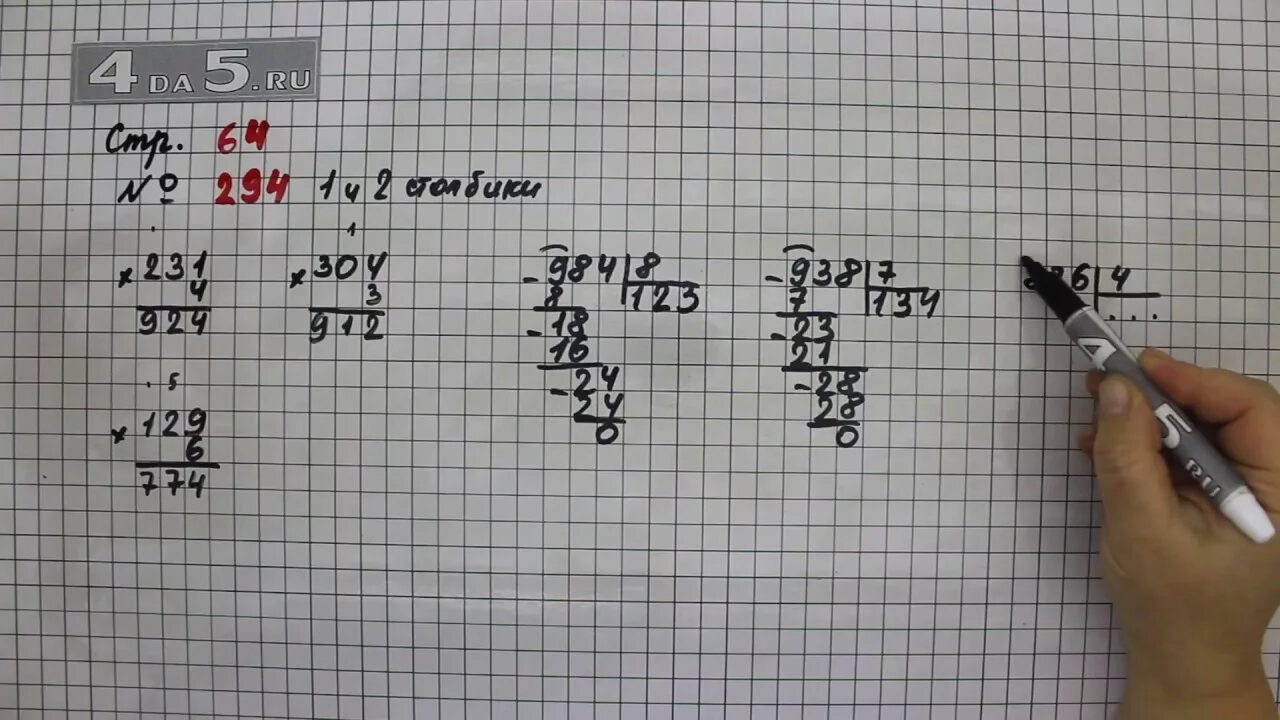 4DA5.RU
Стр. 64
№ 294 1 и 2 столбики
1
× 231
4
924
× 304
3
912
5
× 129
6
774
- 984 8
8 123
- 18
16
- 24
24
0
- 938 7
7 134
- 23
21
- 28
28
0
6 4
. . .
4
5
RU